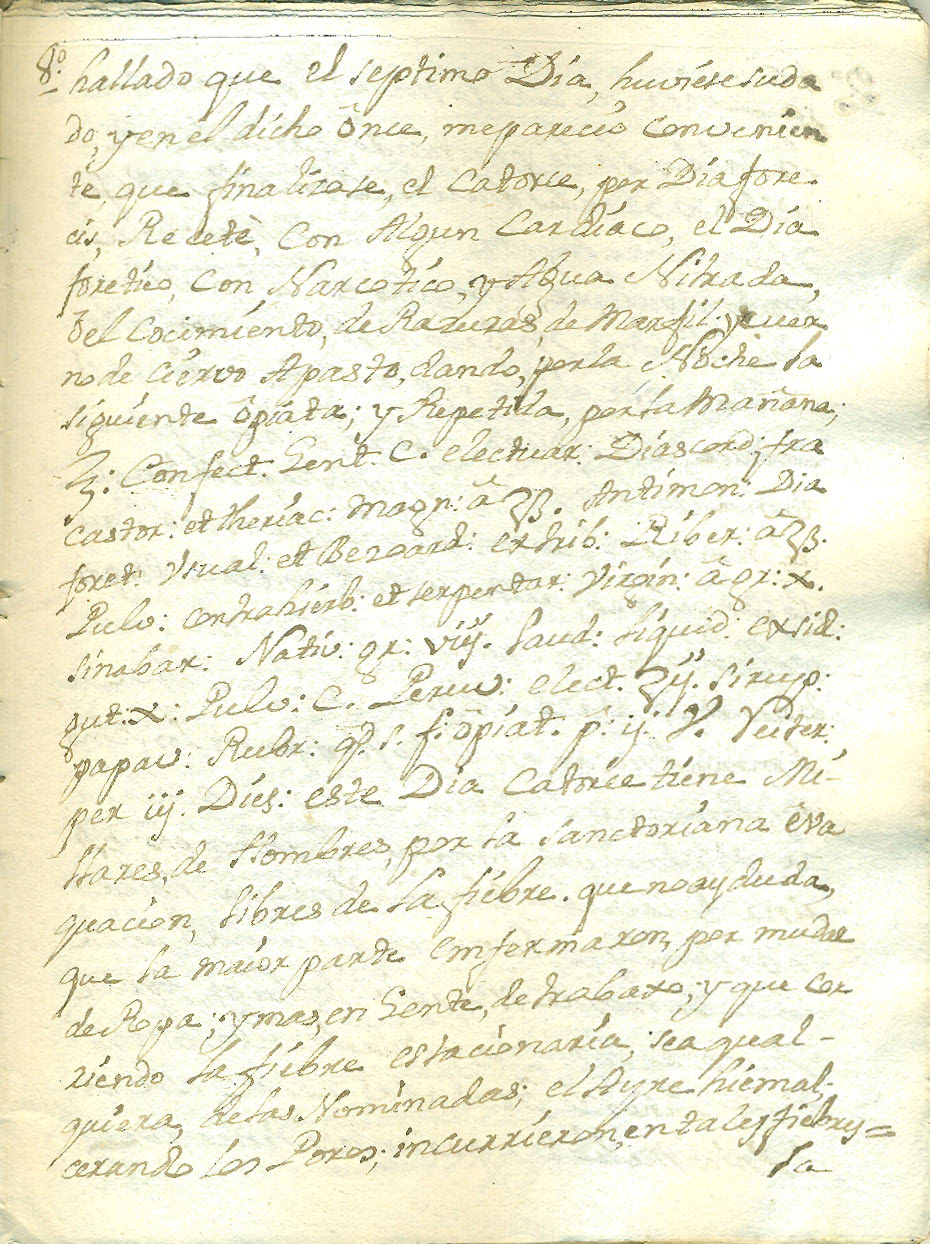 8º.
hallado que el septimo Dia, huviese suda
do, y en el dicho Ônce, me pareció convenien
te, que finalizase, el Catorce, por Diafore
cis, Receté, Con Algun Cardíaco, el Dia
foretico, Con Narcotico, y Agua Nitrada,
õ el Cocimiento, de Raduras, de Marfil, y cuer
no de Ciervo Apasto, dando, por la Noche la
siguiente ôpiata; y Repetida, por la Mañana;
R: Confect. Gent. C. electuar: Diascord; fra
castor: et theriac: magn: â ʒβ. Antimon: Dia
foret: Usual: et Bezoard: exhib: Riber: â ʒβ.
Pulv: contrahierb: et serpentar: Virgin: â gr: x.
sinabar: Nativ: gr: viij. laud: liquid: exsid:
gut: x: Pulv: C. Peruv: elect. ʒij. sirup:
papav: Rubr: q. s. f. ôpiat. p: ij. V. Veiter:
per iij. Dies: este Dia Catorce tiene Mi-
llares, de Hombres, por la sanctoriana eva
quacion, libres de la fiebre. que no ay duda,
que la maior parte enfermaron, por mudar
de Ropa; y mas, en Gente, de trabaxo; y que cor
riendo la fiebre estacionaria, sea qual-
quiera, de las Nominadas; el Ayre hiemal;
cerando los Poros; incurrieron, en tales fiebres=
la